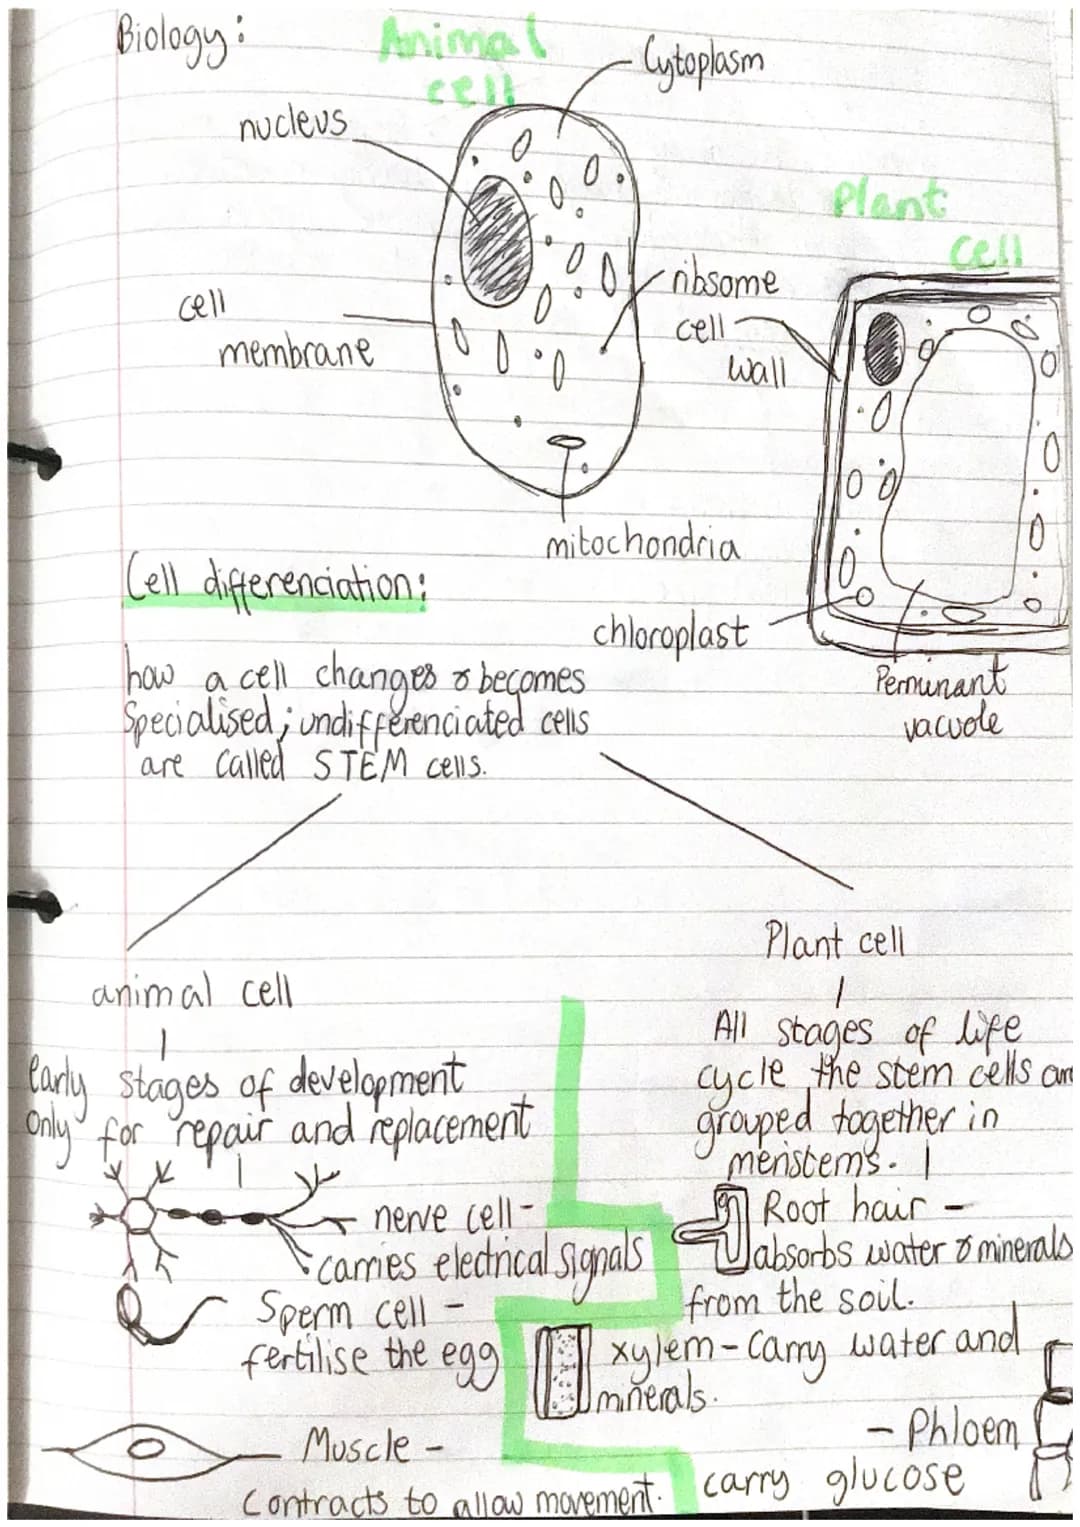 Biology:
Animal
cell
Cytoplasm
nucleus
Plant
cell
ribsome
cell
membrane
cell
wall
mitochondria
Cell differenciation:
chloroplast
how a cell changes & becomes
Specialised; undifferenciated cells
are called STEM cells.
Perminant
vacuole
Plant cell
animal cell
All stages of life
cycle, the stem cells are
grouped together in
meristems.
early stages of development
only for repair and replacement
nerve cell -
carries electrical signals
Root hair -
absorbs water & minerals
from the soil.
Sperm cell -
fertilise the egg
xylem - Carry water and
minerals.
Muscle -
Contracts to allow movement.
- Phloem
carry glucose